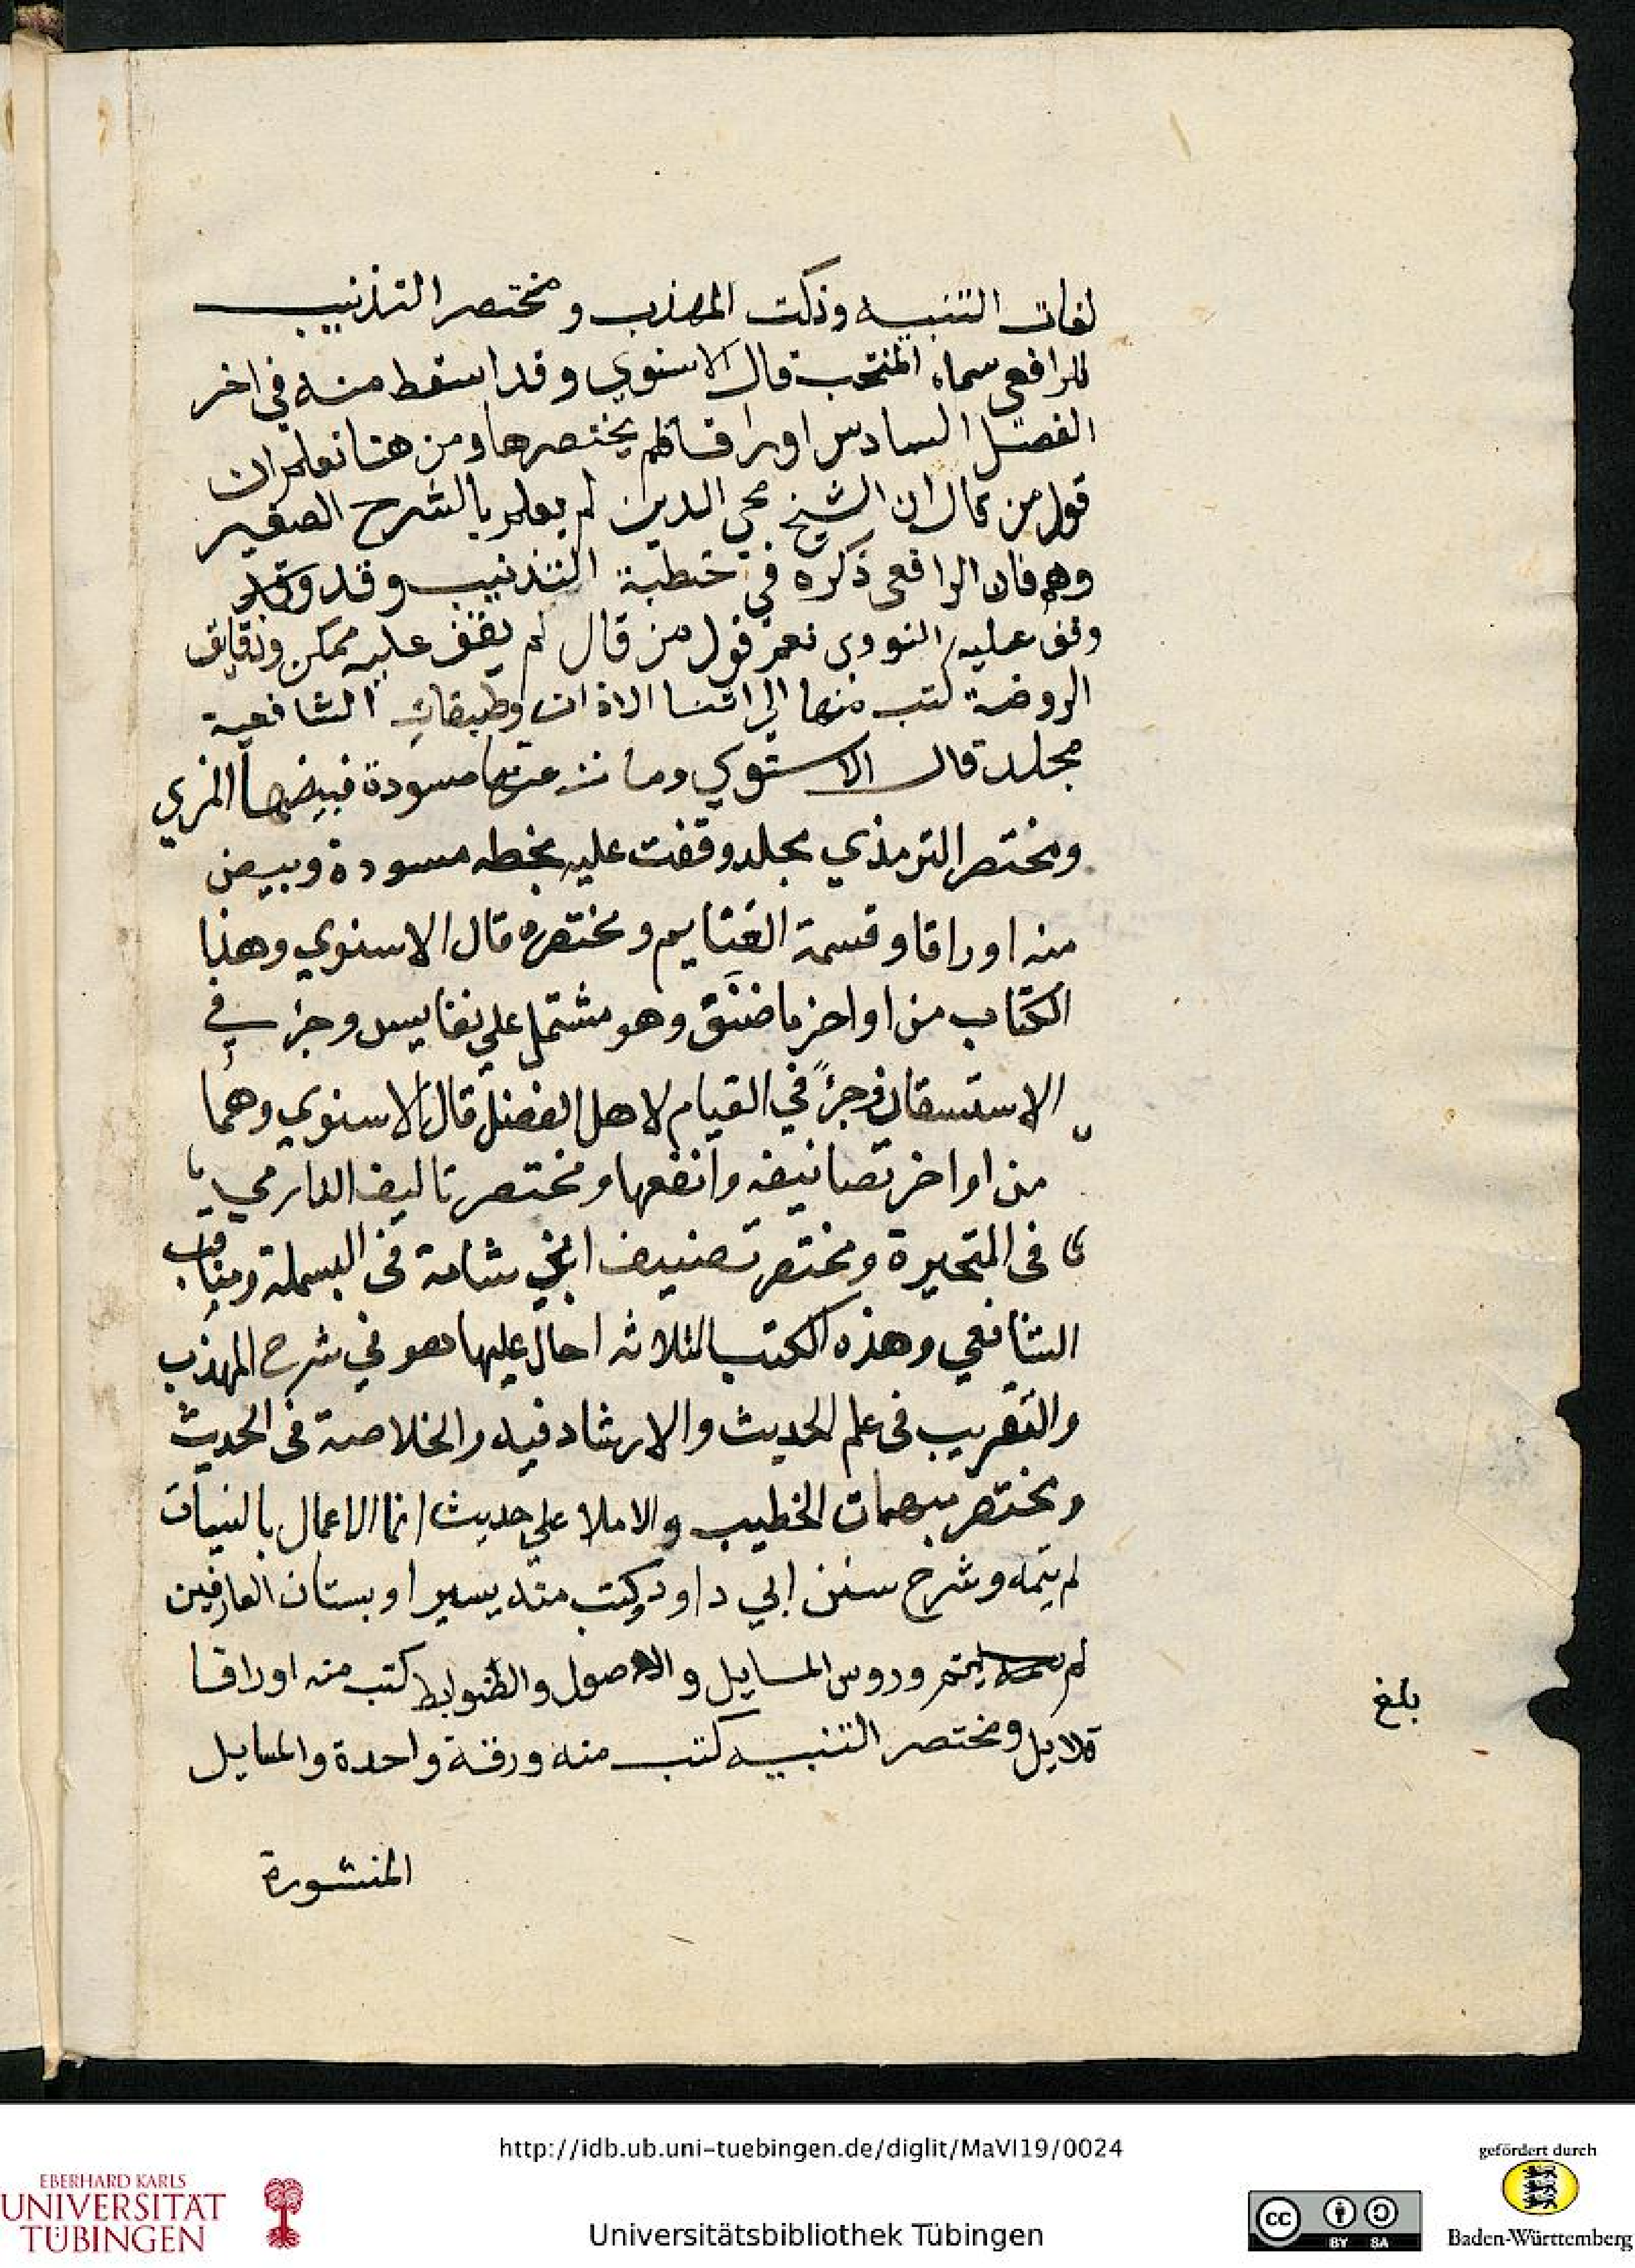 لغات التنبيه وذكت المهذب ومختصر التذنيب
للرافعي سماه المنتخب قال الاسنوي وقد اسقط منه في اخر
الفصل السادس اوراقا فلم يختصرها ومن هنا نعلم ان
قول من قال ان الشيخ محي الدين لم يعلم بالشرح الصغير
وهم فان الرافعي ذكره في خطبة التذنيب وقد وقد
وقف عليه النووي نعم قول من قال لم يقف عليه ممكن ودقايق
الروضة كتب منها الى اثنا الاذان وطبقات الشافعية
مجلد قال الاسنوي ومات عنها مسودة فبيضها المزي
ومختصر الترمذي مجلد وقفت عليه بخطه مسودة وبيض
منه اوراقا وقسمة الغنايم ومختصره قال الاسنوي وهذا
الكتاب من اواخر ما صنف وهو مشتمل على نفايس وجزء في
الاستسقاء وجزءً في القيام لاهل الفضل قال الاسنوي وهما
من اواخر تصانيفه وانفعها ومختصر تاليف الدارمي
في المتحيرة ومختصر تصنيف ابي شامة في البسملة ومناقب
الشافعي وهذه الكتب الثلاثه احال عليها هو في شرح المهذب
والتقريب في علم الحديث والارشاد فيه والخلاصة في الحديث
ومختصر مبهمات الخطيب والاملا على حديث انما الاعمال بالنيات
لم يتمه وشرح سنن ابي داود وكتب منه يسيرا وبستان العارفين
لم يتم وروس المسايل والاصول والضوابط كتب منه اوراقا
قلايل ومختصر التنبيه كتب منه ورقة واحدة والمسايل
بلغ
المنشورة
http://idb.ub.uni-tuebingen.de/diglit/MaVI19/0024
Universitätsbibliothek Tübingen
EBERHARD KARLS
UNIVERSITÄT
TÜBINGEN
cc
BY SA
gefördert durch
Baden-Württemberg